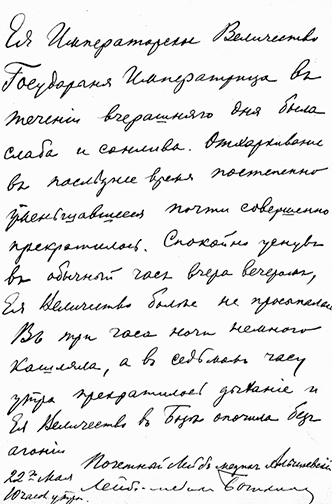 Ея Императорское Величество
Государыня Императрица въ
теченіи вчерашняго дня была
слаба и сонлива. Отхаркиваніе
въ последнее время постепенно
уменьшавшееся почти совершенно
прекратилось. Спокойно уснувъ
въ обычный часъ вчера вечеромъ,
Ея Величество более не просыпалась
Въ три часа ночи немного
кашляла, а въ седьмомъ часу
утра прекратилось дыханіе и
Ея Величество въ Бозе опочила безъ
агоніи
Почетный Лейбъ медикъ Алышевскій
22го Мая Лейбъ-медикъ
10 часовъ утра